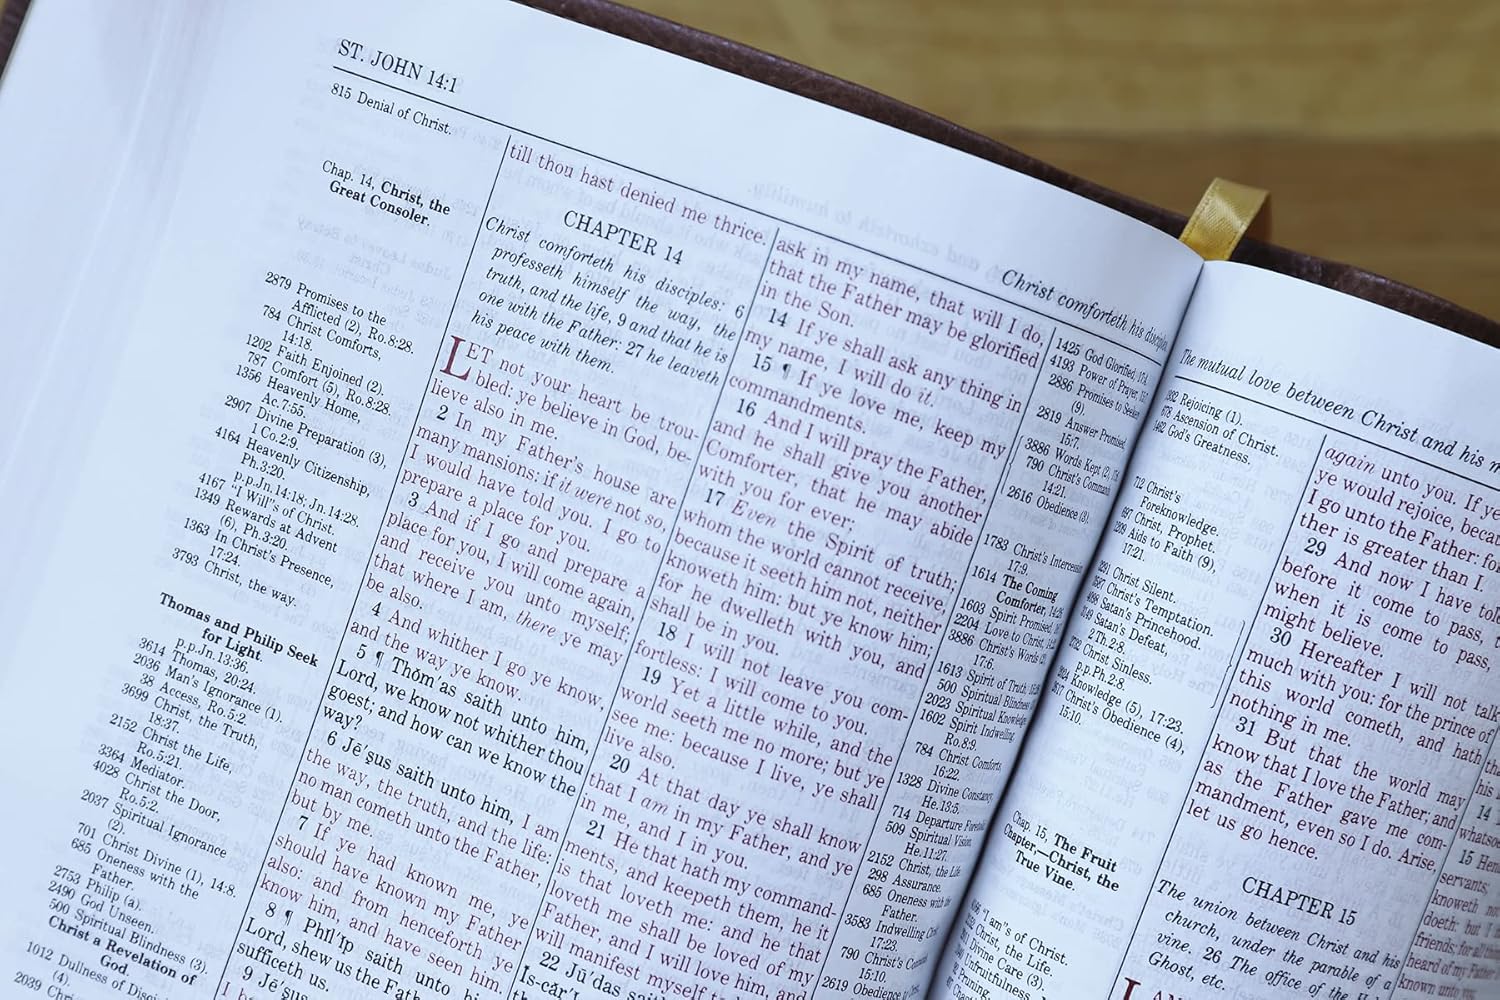 ST. JOHN 14:1
815 Denial of Christ.
Chap. 14, Christ, the
Great Consoler.
2879 Promises to the
Afflicted (2), Ro.8:28.
784 Christ Comforts,
14:18.
1202 Faith Enjoined (2).
787 Comfort (5), Ro.8:28.
1356 Heavenly Home,
Ac.7:55.
2907 Divine Preparation (3),
1 Co.2:9.
4164 Heavenly Citizenship,
Ph.3:20.
p.p.Jn.14:18; Jn.14:28.
4167 "I Will"s of Christ.
1349 Rewards at Advent
(6), Ph.3:20.
1363 In Christ's Presence,
17:24.
3793 Christ, the way.
Thomas and Philip Seek
for Light.
p.p.Jn.13:36.
3614 Thomas, 20:24.
2036 Man's Ignorance (1).
38 Access, Ro.5:2.
3699 Christ, the Truth,
18:37.
2152 Christ the Life,
Ro.5:21.
3364 Mediator.
4028 Christ the Door,
Ro.5:2.
2037 Spiritual Ignorance
(2).
701 Christ Divine (1), 14:8.
685 Oneness with the
Father.
2753 Philip (a).
2490 God Unseen.
500 Spiritual Blindness (3).
Christ a Revelation of
God.
1012 Dullness of
(4).
2039
till thou hast denied me thrice.
CHAPTER 14
Christ comforteth his disciples: 6
professeth himself the way, the
truth, and the life, 9 and that he is
one with the Father: 27 he leaveth
his peace with them.
LET not your heart be trou-
bled: ye believe in God, be-
lieve also in me.
2 In my Father's house are
many mansions: if it were not so,
I would have told you. I go to
prepare a place for you.
3 And if I go and prepare a
place for you, I will come again,
and receive you unto myself;
that where I am, there ye may
be also.
4 And whither I go ye know,
and the way ye know.
5 ¶ Thŏm´as saith unto him,
Lord, we know not whither thou
goest; and how can we know the
way?
6 Jē´ṣus saith unto him, I am
the way, the truth, and the life:
no man cometh unto the Father,
but by me.
7 If ye had known me, ye
should have known my Father
also: and from henceforth ye
know him, and have seen him.
8 ¶ Phĭl´ĭp saith unto him,
Lord, shew us the Father,
sufficeth us.
9 Jē´ṣus
Christ comforteth his
ask in my name, that will I do,
that the Father may be glorified
in the Son.
14 If ye shall ask any thing in
my name, I will do it.
15 ¶ If ye love me, keep my
commandments.
16 And I will pray the Father,
and he shall give you another
Comforter, that he may abide
with you for ever;
17 Even the Spirit of truth;
whom the world cannot receive,
because it seeth him not, neither
knoweth him: but ye know him;
for he dwelleth with you, and
shall be in you.
18 I will not leave you com-
fortless: I will come to you.
19 Yet a little while, and the
world seeth me no more; but ye
see me: because I live, ye shall
live also.
20 At that day ye shall know
that I am in my Father, and ye
in me, and I in you.
21 He that hath my command-
ments, and keepeth them, he it
is that loveth me: and he that
loveth me shall be loved of my
Father, and I will love him, and
will manifest myself to
22 Jū´das saith
Ĭs-căr´
1425 God Glorified,
4193 Power of Prayer,
2886 Promises to
(9).
2819 Answer Promised,
15:7.
3886 Words Kept (2),
790 Christ's
14:21.
2616 Obedience (3).
1783 Christ's
17:9.
1614 The Coming
Comforter,
1603 Spirit Promised,
2204 Love to Christ,
3886 Christ's Words
17:6.
1613 Spirit of Truth,
500 Spiritual Blindness
2023 Spiritual
1602 Spirit Indwelling,
Ro.8:9.
784 Christ Comforts,
16:22.
1328 Divine Constancy,
He.13:5.
714 Departure
509 Spiritual Vision,
He.11:27.
2152 Christ, the Life
298 Assurance.
685 Oneness with the
Father.
3583 Indwelling
17:23.
790 Christ's
15:10.
2619 Obedience
The mutual love between Christ and his
Rejoicing (1).
Ascension of Christ.
God's Greatness.
Christ's
Foreknowledge.
Christ, Prophet.
Aids to Faith (9),
17:21.
Christ Silent.
Christ's Temptation.
Satan's Princehood.
Satan's Defeat,
2 Th.2:8.
Christ Sinless.
p.p.Ph.2:8.
Knowledge (5), 17:23.
Christ's Obedience (4),
15:10.
Chap. 15, The Fruit
Chapter—Christ, the
True Vine.
"I am"s of Christ.
Christ, the Life.
Divine Care (3).
Unfruitfulness,
Pruning,
again unto you. If ye
ye would rejoice, because
I go unto the Father: for
ther is greater than I.
29 And now I have told
before it come to pass,
when it is come to pass,
might believe.
30 Hereafter I will not talk
much with you: for the prince of
this world cometh, and hath
nothing in me.
31 But that the world may
know that I love the Father; and
as the Father gave me com-
mandment, even so I do. Arise,
let us go hence.
CHAPTER 15
The union between Christ and his
church, under the parable of a
vine. 26 The office of the
Ghost, etc.
his
14
whatsoe
15 Hen
servants;
knoweth
doeth: but I
friends; for all
heard of my
known unto